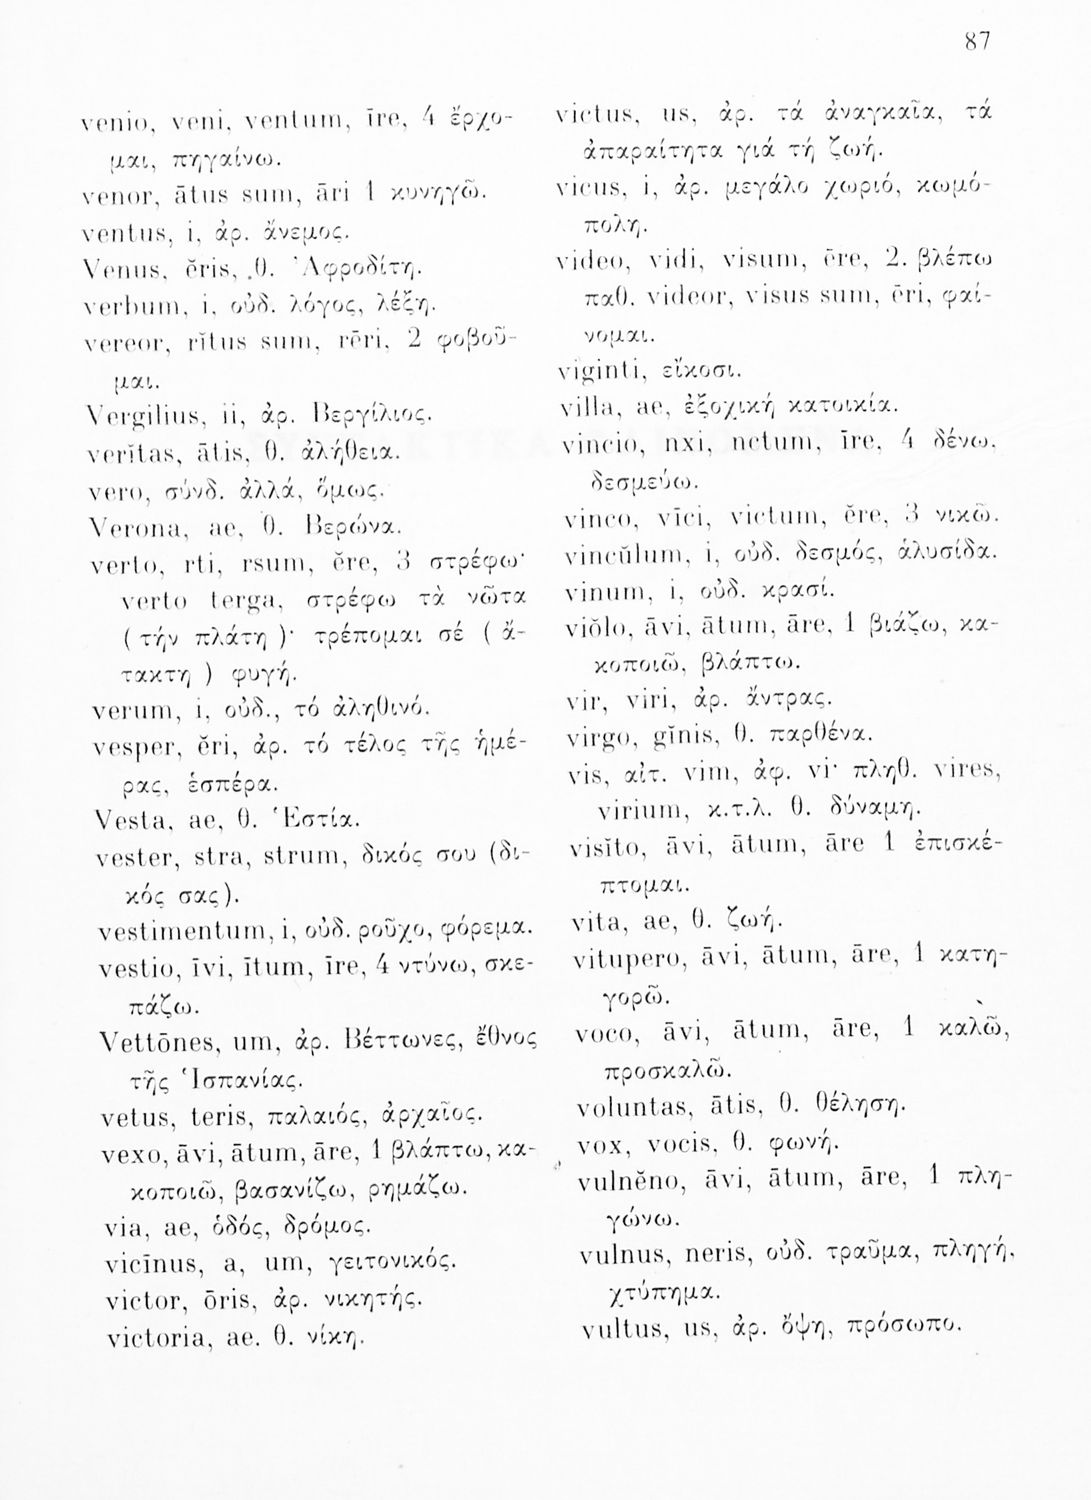 87
venio, veni, ventum, īre, 4 ἔρχο-
μαι, πηγαίνω.
venor, ātus sum, āri 1 κυνηγῶ.
ventus, i, ἀρ. ἄνεμος.
Venus, ĕris, θ. Ἀφροδίτη.
verbum, i, οὐδ. λόγος, λέξη.
vereor, rĭtus sum, rēri, 2 φοβοῦ-
μαι.
Vergilius, ii, ἀρ. Βεργίλιος.
verĭtas, ātis, θ. ἀλήθεια.
vero, σύνδ. ἀλλά, ὅμως.
Verona, ae, θ. Βερώνα.
verto, rti, rsum, ĕre, 3 στρέφω·
verto terga, στρέφω τὰ νῶτα
( τήν πλάτη )· τρέπομαι σέ ( ἄ-
τακτη ) φυγή.
verum, i, οὐδ., τό ἀληθινό.
vesper, ĕri, ἀρ. τό τέλος τῆς ἡμέ-
ρας, ἑσπέρα.
Vesta, ae, θ. Ἑστία.
vester, stra, strum, δικός σου (δι-
κός σας).
vestimentum, i, οὐδ. ροῦχο, φόρεμα.
vestio, īvi, ītum, īre, 4 ντύνω, σκε-
πάζω.
Vettōnes, um, ἀρ. Βέττωνες, ἔθνος
τῆς Ἱσπανίας.
vetus, teris, παλαιός, ἀρχαῖος.
vexo, āvi, ātum, āre, 1 βλάπτω, κα-
κοποιῶ, βασανίζω, ρημάζω.
via, ae, ὁδός, δρόμος.
vicīnus, a, um, γειτονικός.
victor, ōris, ἀρ. νικητής.
victoria, ae. θ. νίκη.
victus, us, ἀρ. τά ἀναγκαῖα, τά
ἀπαραίτητα γιά τή ζωή.
vicus, i, ἀρ. μεγάλο χωριό, κωμό-
πολη.
video, vidi, visum, ēre, 2. βλέπω
παθ. videor, visus sum, ēri, φαί-
νομαι.
viginti, εἴκοσι.
villa, ae, ἐξοχική κατοικία.
vincio, nxi, nctum, īre, 4 δένω,
δεσμεύω.
vinco, vīci, victum, ĕre, 3 νικῶ.
vincŭlum, i, οὐδ. δεσμός, ἁλυσίδα.
vinum, i, οὐδ. κρασί.
viŏlo, āvi, ātum, āre, 1 βιάζω, κα-
κοποιῶ, βλάπτω.
vir, viri, ἀρ. ἄντρας.
virgo, gĭnis, θ. παρθένα.
vis, αἰτ. vim, ἀφ. vi· πληθ. vires,
virium, κ.τ.λ. θ. δύναμη.
visĭto, āvi, ātum, āre 1 ἐπισκέ-
πτομαι.
vita, ae, θ. ζωή.
vitupero, āvi, ātum, āre, 1 κατη-
γορῶ.
voco, āvi, ātum, āre, 1 καλῶ,
προσκαλῶ.
voluntas, ātis, θ. θέληση.
vox, vocis, θ. φωνή.
vulnĕno, āvi, ātum, āre, 1 πλη-
γώνω.
vulnus, neris, οὐδ. τραῦμα, πληγή,
χτύπημα.
vultus, us, ἀρ. ὄψη, πρόσωπο.